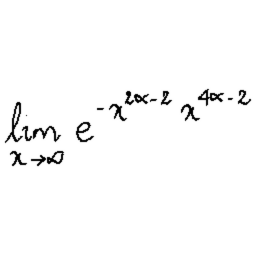 \lim_{x \to \infty} e^{-x^{2\alpha-2}} x^{4\alpha-2}